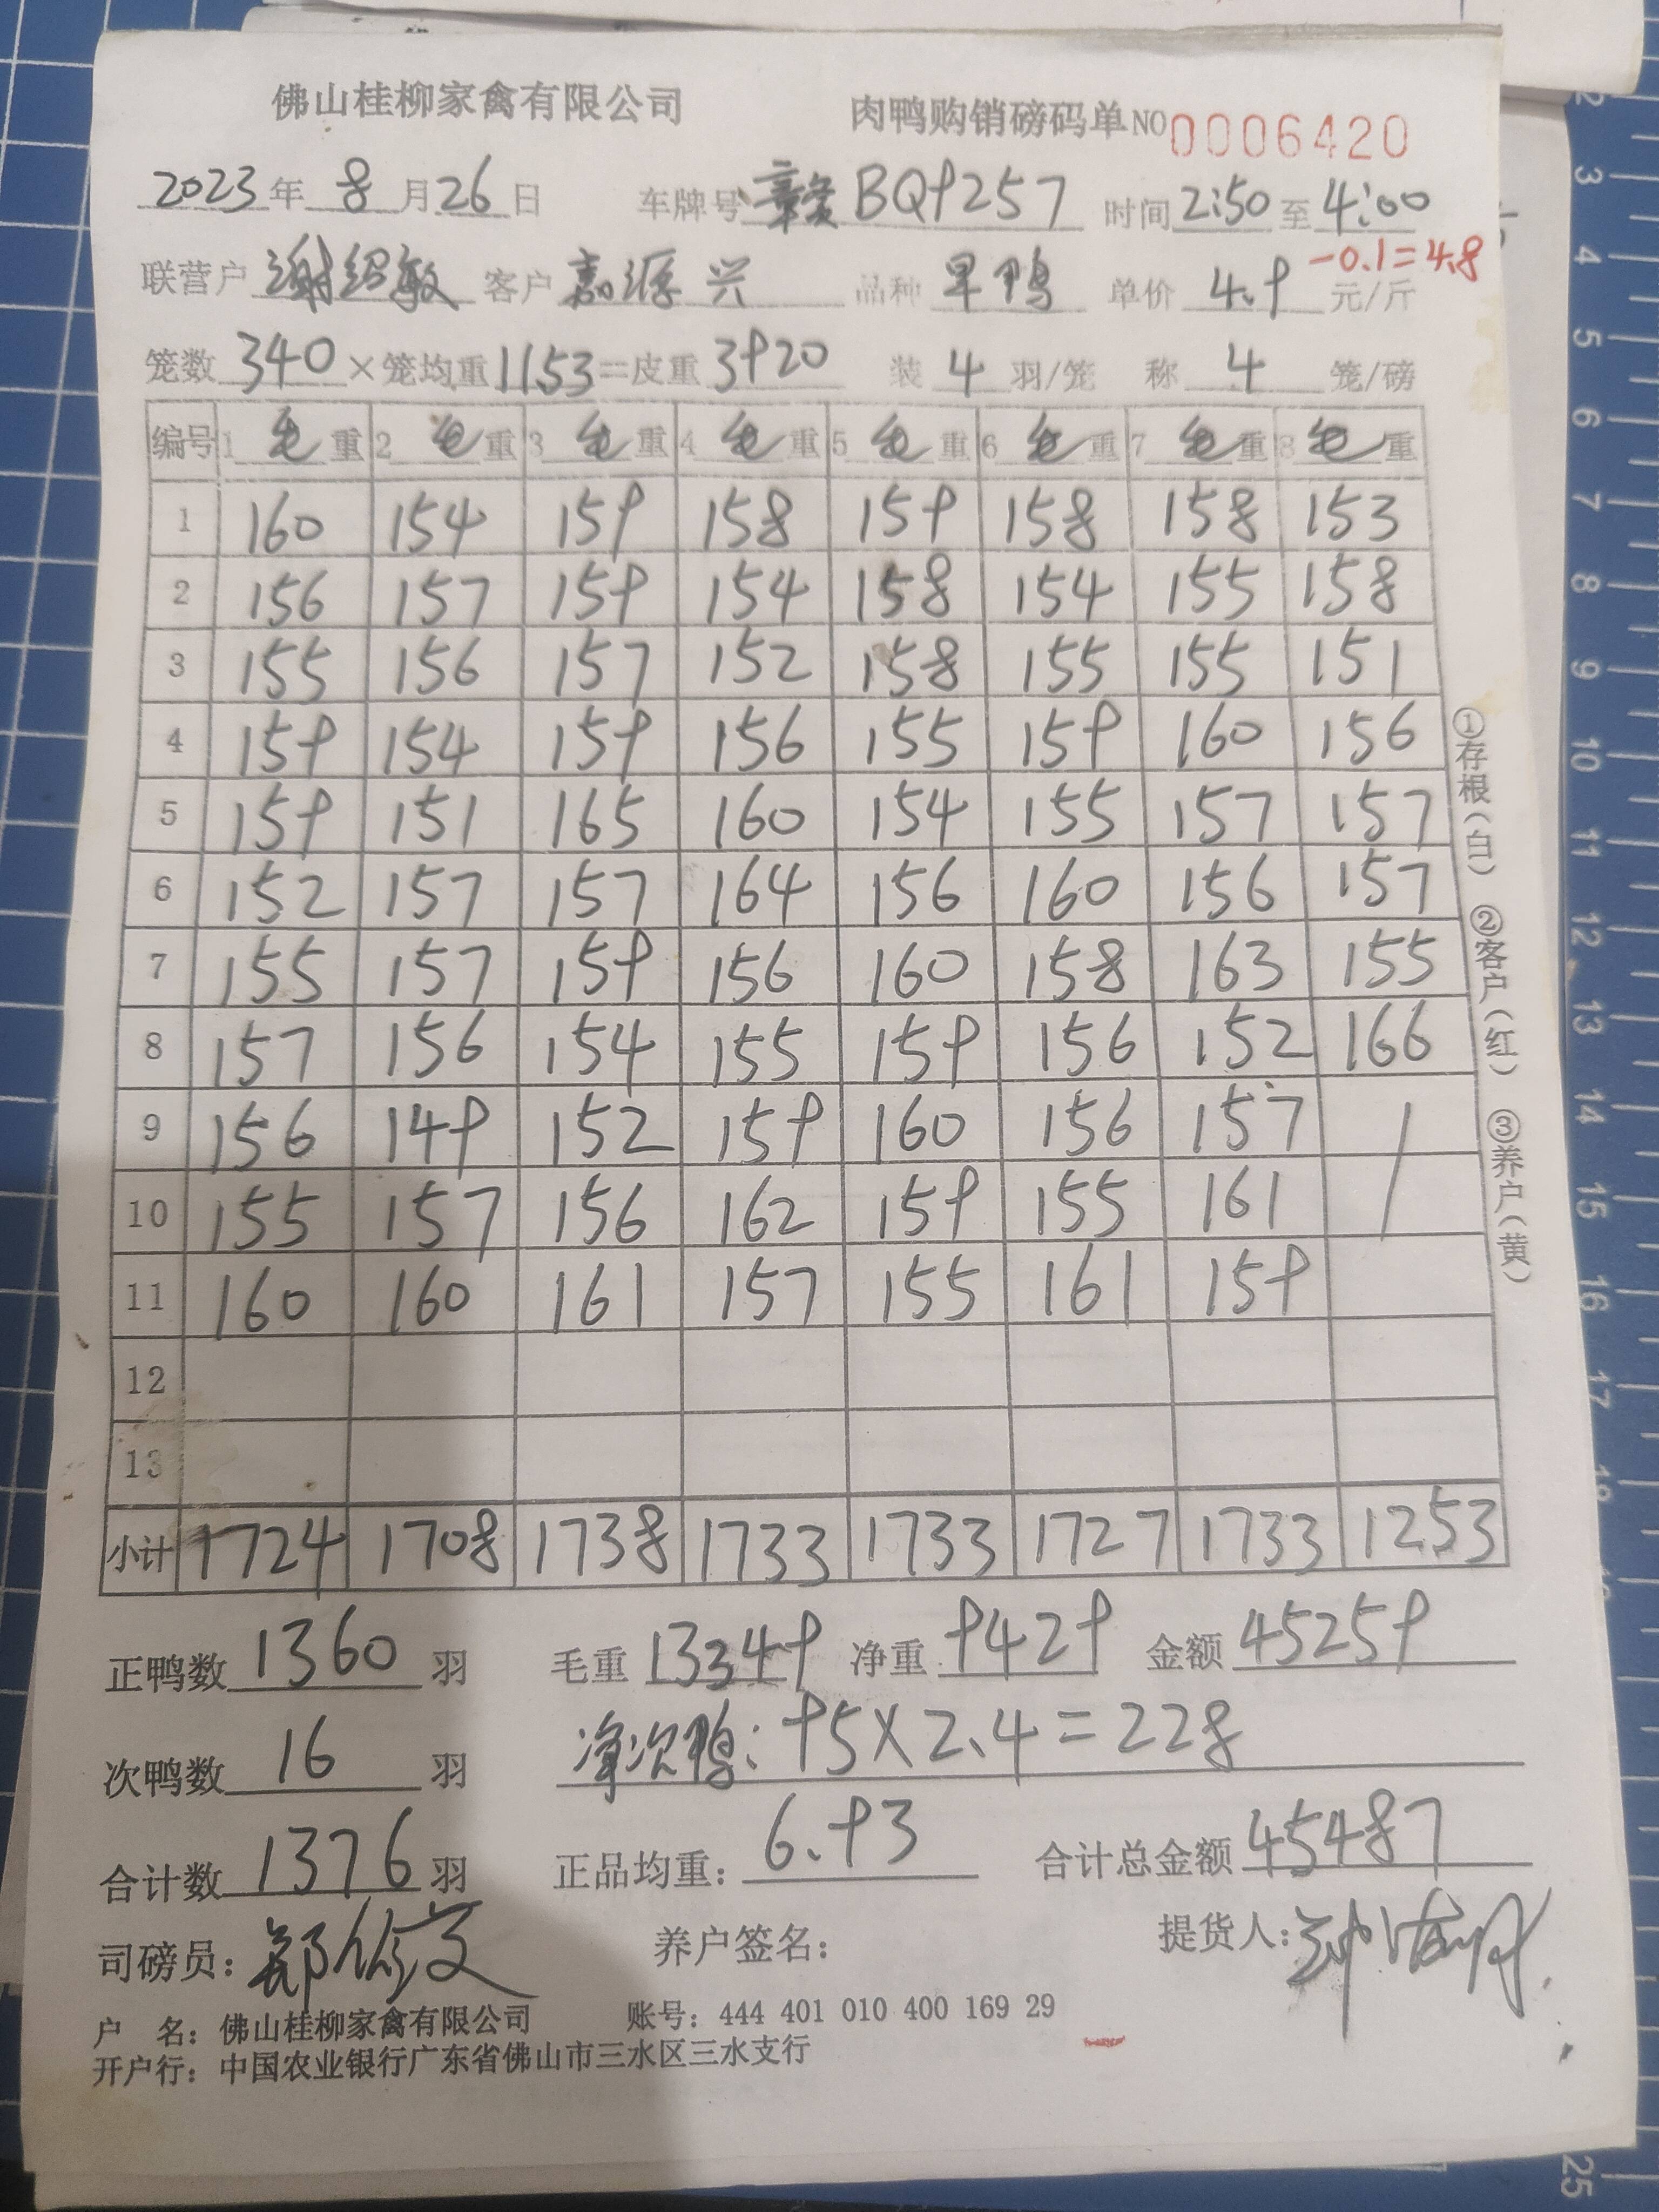 佛山桂柳家禽有限公司 肉鸭购销磅码单 NO 0006420
2023年 8月26日 车牌号 赣BQ9257 时间 2:50 至 4:00
-0.1=4.8
联营户 谢绍敏 客户 嘉源兴 品种 旱鸭 单价 4.9 元/斤
笼数 340 ×笼均重 11.53 =皮重 3920 装 4 羽/笼 称 4 笼/磅
编号 1 毛重 2 毛重 3 毛重 4 毛重 5 毛重 6 毛重 7 毛重 8 毛重
1 160 154 159 158 159 158 158 153
2 156 157 159 154 158 154 155 158
3 155 156 157 152 158 155 155 151
4 159 154 159 156 155 159 160 156
5 159 151 165 160 154 155 157 157
6 152 157 157 164 156 160 156 157
7 155 157 159 156 160 158 163 155
8 157 156 154 155 159 156 152 166
9 156 149 152 159 160 156 157
10 155 157 156 162 159 155 161
11 160 160 161 157 155 161 159
12
13
小计 1724 1708 1738 1733 1733 1727 1733 1253
正鸭数 1360 羽 毛重 13349 净重 9429 金额 45259
次鸭数 16 羽 净次鸭: 95×2.4=228
合计数 1376 羽 正品均重: 6.93 合计总金额 45487
司磅员: 养户签名: 提货人:
户 名: 佛山桂柳家禽有限公司 账号: 444 401 010 400 169 29
开户行: 中国农业银行广东省佛山市三水区三水支行
①存根(白) ②客户(红) ③养户(黄)
2
3
4
5
6
7
8
9
10
11
12
13
14
15
16
17
25